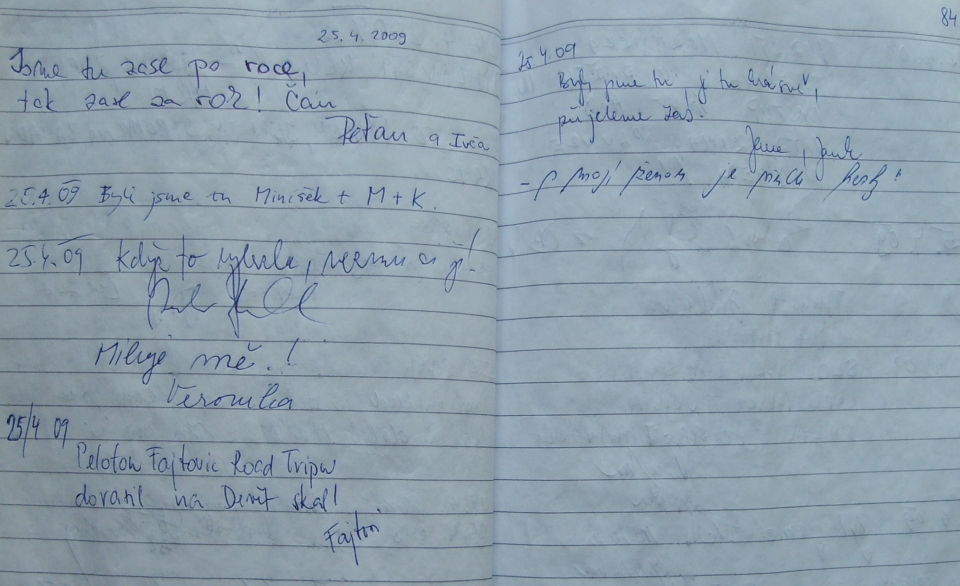 25.4.2009
Jsme tu zase po roce,
tak zase za rok! Čau
Peťan a Ivča
25.4.09 Byli jsme tu Minišek + M + K.
25.4.09 Když to vyhrála, vezmu si ji!
Miluje mě.!
Veronika
25/4 09
Peloton Fajtovic Road Tripu
dorazil na Devět skal!
Fajtovi
84
25.4.09
Byli jsme tu, je tu krásně,
přijedeme zas.
- S mojí ženou je hezky!